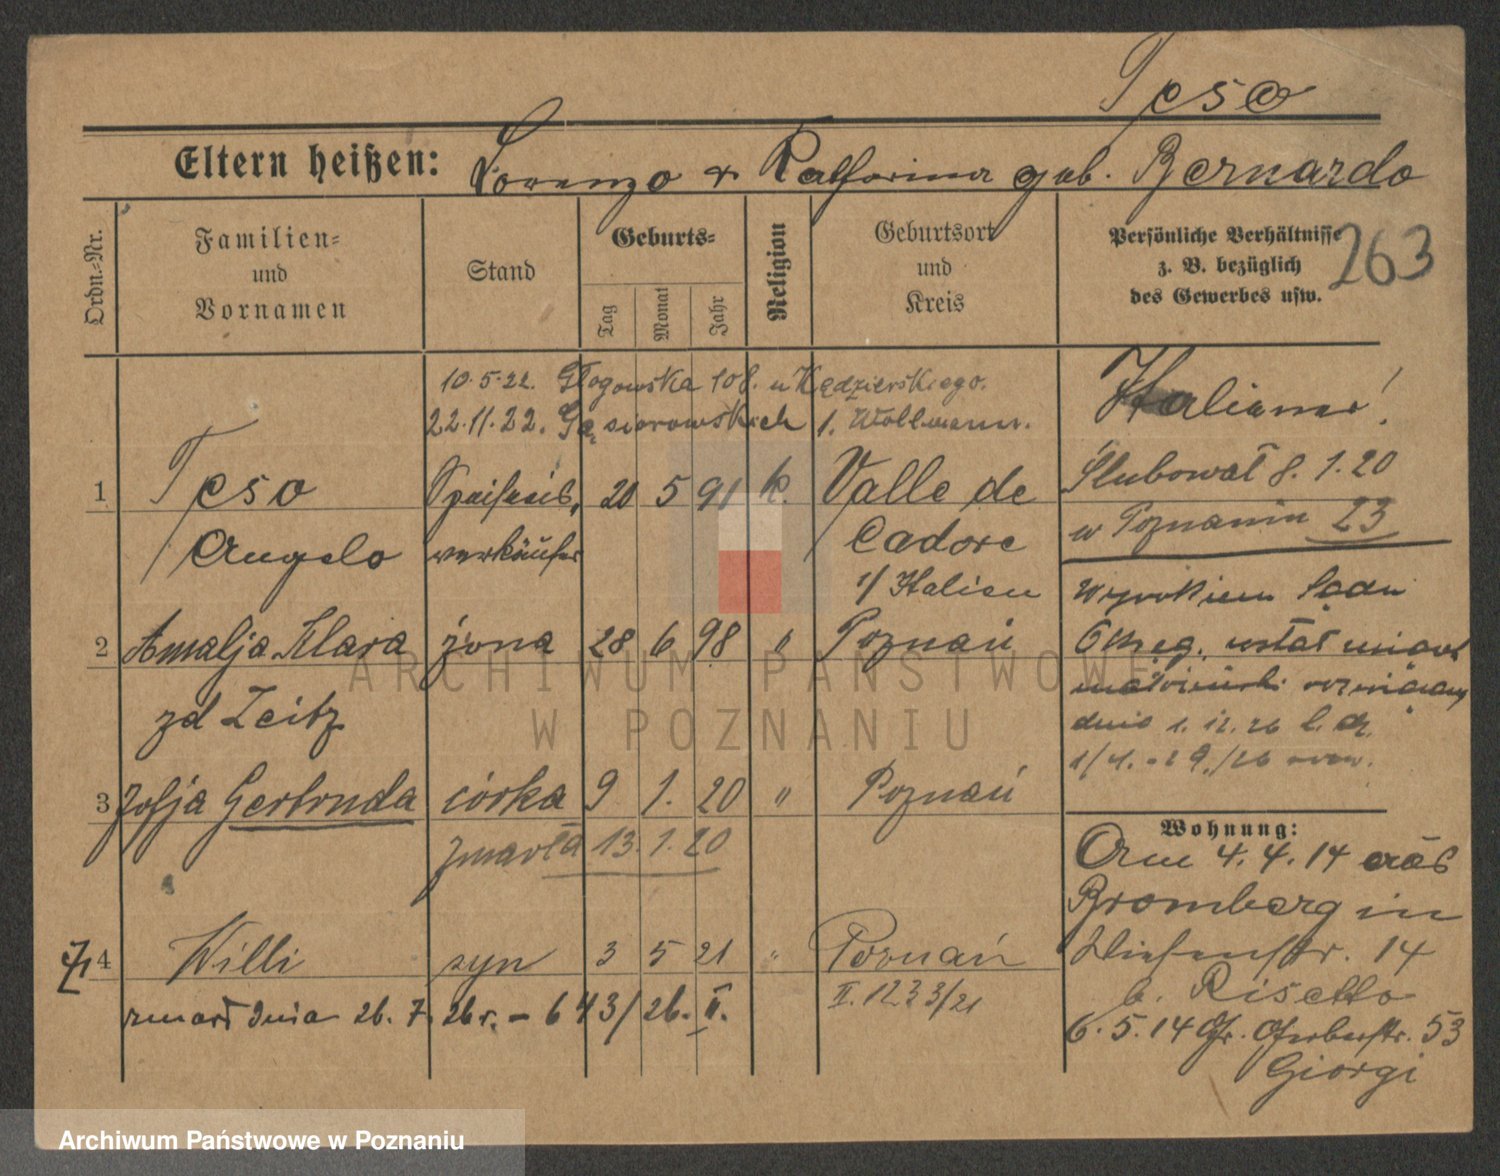 Teso
Eltern heißen: Lorenzo & Katharina geb. Bernardo
Ordn.-Nr.
Familien-
und
Vornamen
Stand
Geburts-
Tag
Monat
Jahr
Religion
Geburtsort
und
Kreis
Persönliche Verhältnisse
z. B. bezüglich
des Gewerbes usw.
263
10.5.22. Głogowska 108. u Kędzierskiego.
22.11.22. Gąsiorowskich 1. Wollmann.
1 Teso Speiseeis, 20 5 91 k. Valle de
Angelo verkäufer Cadore
i/ Italien
2 Amalja Klara żona 28 6 98 " Poznań
zd Zeitz
3 Zofja Gertruda córka 9 1. 20 " Poznań
zmarła 13.1.20
4 Willi syn 3 5 21 " Poznań
II. 1233/21
zmarł dnia 26. 7. 26 r. - 643/26. II.
Italiener!
Ślubował 8. 1. 20
w Poznaniu 23
Wyrokiem Sądu
Okręg. został
małżeński rozwiązany
dnia 1. 12. 26 l. dz.
Wohnung:
Am 4. 4. 14 aus
Bromberg in
Wiesenstr. 14
b. Risetto
6. 5. 14 Gr. Gerberstr. 53
Giorgi
ARCHIWUM PAŃSTWOWE
W POZNANIU
Archiwum Państwowe w Poznaniu